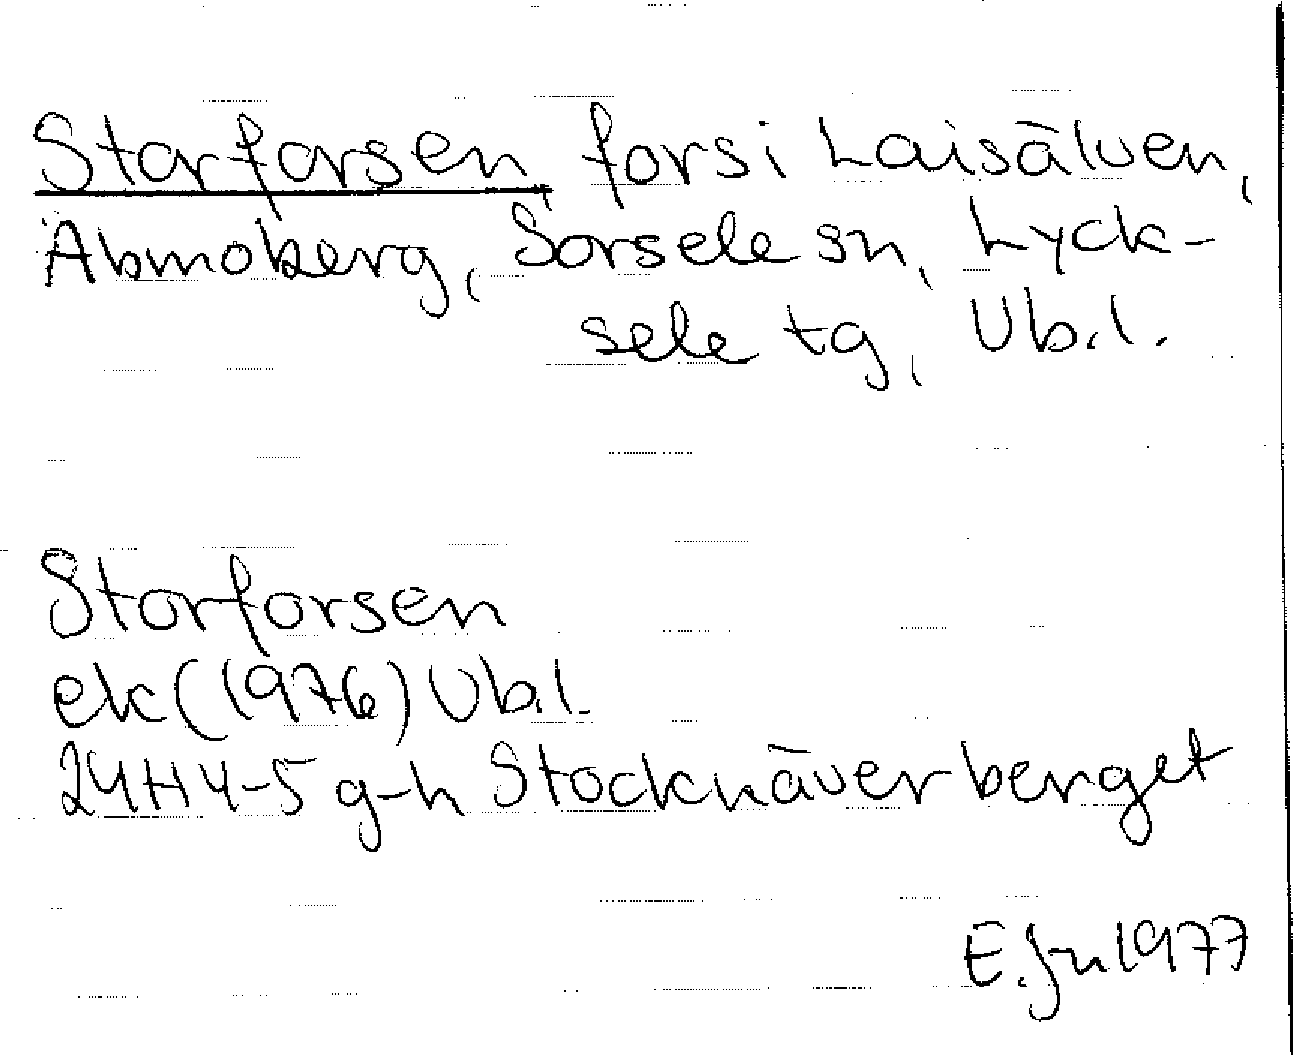 Storforsen, fors i Laisälven,
Abmoberg, Sorsele sn, Lyck-
sele tg, Vb.l.
Storforsen
ek (1976) Vb.l.
24H 4-5 g-h Stocknäverberget
E. Jn 1977